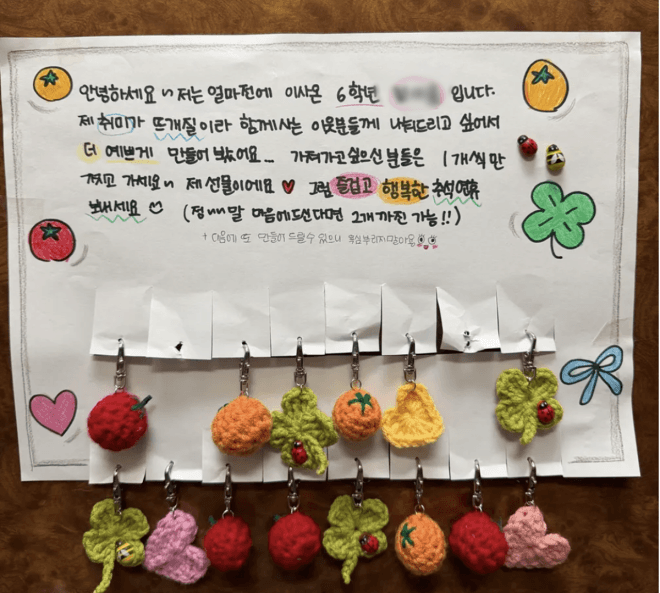 안녕하세요~ 저는 얼마전에 이사온 6학년 입니다.
제 취미가 뜨개질이라 함께사는 이웃분들께 나눠드리고 싶어서
더 예쁘게 만들어 봤어요... 가져가고싶으신 분들은 1개씩만
가세요~ 제 선물이에요 ♥ 그럼 즐겁고 행복한 추석연휴
보내세요 ☺ (정~말 마음에드신다면 2개까진 가능!!)
+ 다음에 또 만들어 드릴수 있으니 욕심부리지말아용